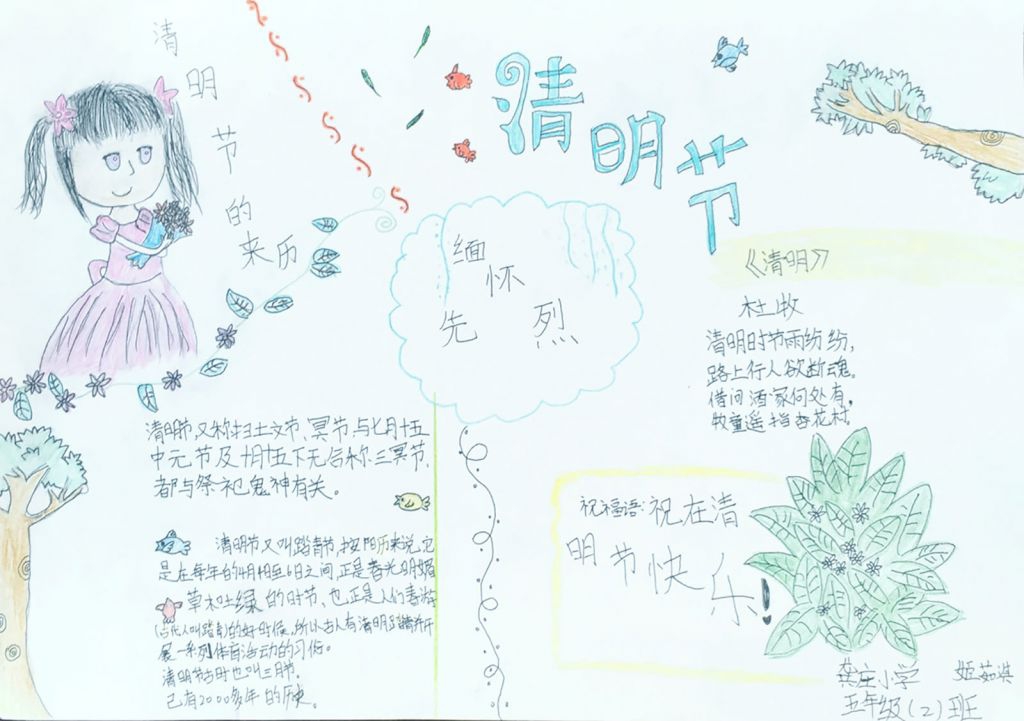 清明节的来历
清明节
缅怀
先烈
《清明》
杜牧
清明时节雨纷纷,
路上行人欲断魂。
借问酒家何处有,
牧童遥指杏花村。
清明节,又称扫土文节、冥节,与七月十五
中元节及十月十五下元合称三冥节,
都与祭祀鬼神有关。
清明节又叫踏青节,按阳历来说,它
是在每年的4月4日至6日之间,正是春光明媚
草木吐绿的时节,也正是人们春游
(古代人叫踏青)的好时候,所以古人有清明踏青并开
展一系列体育活动的习俗。
清明节古时也叫三月节,
已有2000多年的历史。
祝福语:祝在清
明节快乐!
龚庄小学 姬茹洪
五年级(2)班